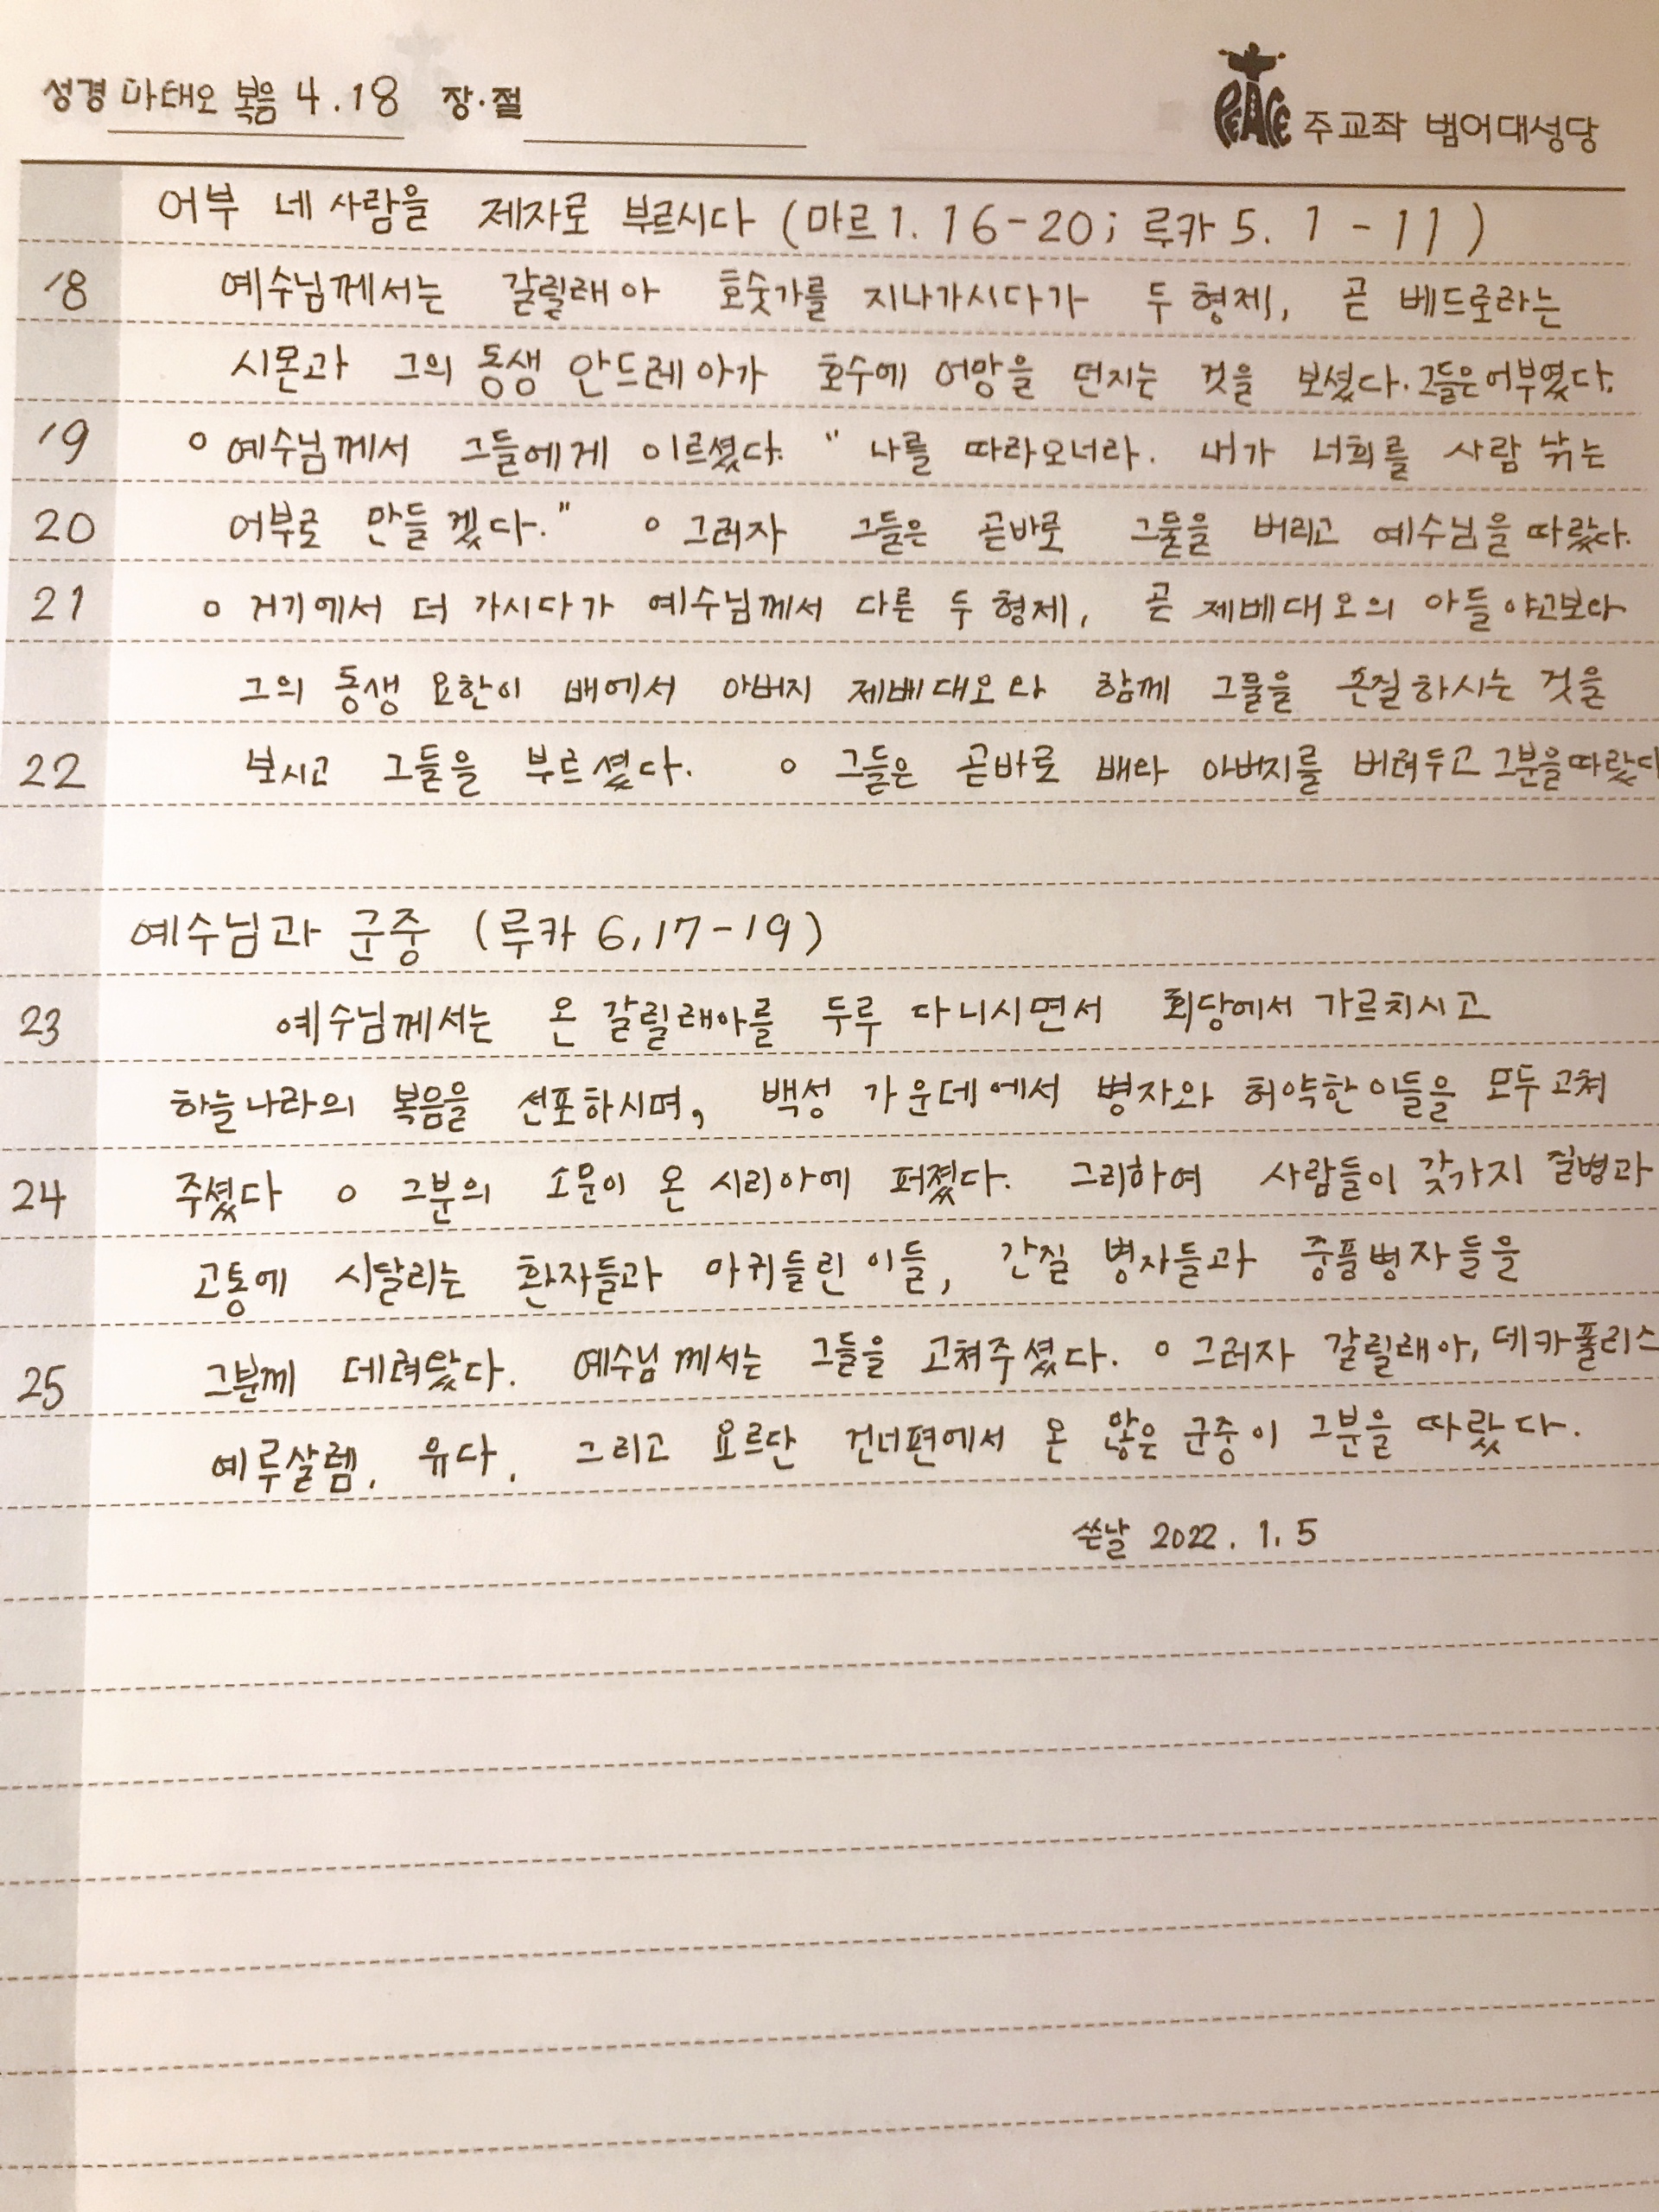 성경 마태오 복음 4.18 장·절
PEACE 주교좌 범어대성당
어부 네 사람을 제자로 부르시다 (마르 1. 16-20; 루카 5. 1-11)
18 예수님께서는 갈릴래아 호숫가를 지나가시다가 두 형제, 곧 베드로라는
시몬과 그의 동생 안드레아가 호수에 어망을 던지는 것을 보셨다. 그들은 어부였다.
19 ○ 예수님께서 그들에게 이르셨다. " 나를 따라오너라. 내가 너희를 사람 낚는
20 어부로 만들겠다." ○ 그러자 그들은 곧바로 그물을 버리고 예수님을 따랐다.
21 ○ 거기에서 더 가시다가 예수님께서 다른 두 형제, 곧 제베대오의 아들 야고보와
그의 동생 요한이 배에서 아버지 제베대오와 함께 그물을 손질하시는 것을
22 보시고 그들을 부르셨다. ○ 그들은 곧바로 배와 아버지를 버려두고 그분을 따랐다
예수님과 군중 (루카 6,17-19)
23 예수님께서는 온 갈릴래아를 두루 다니시면서 회당에서 가르치시고
하늘나라의 복음을 선포하시며, 백성 가운데에서 병자와 허약한 이들을 모두 고쳐
24 주셨다 ○ 그분의 소문이 온 시리아에 퍼졌다. 그리하여 사람들이 갖가지 질병과
고통에 시달리는 환자들과 마귀들린 이들, 간질 병자들과 중풍병자들을
25 그분께 데려왔다. 예수님께서는 그들을 고쳐주셨다. ○ 그러자 갈릴래아, 데카폴리스
예루살렘, 유다, 그리고 요르단 건너편에서 온 많은 군중이 그분을 따랐다.
쓴날 2022. 1. 5